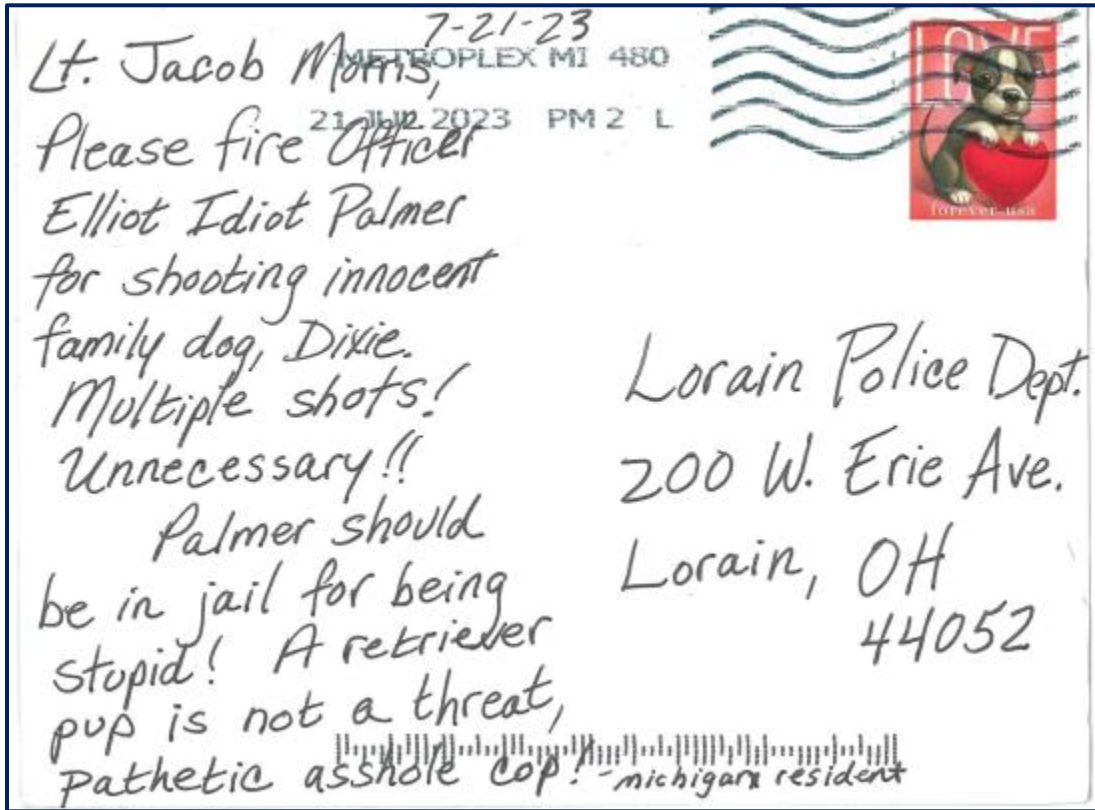 7-21-23
Lt. Jacob Morris,
METROPLEX MI 480
21 JUL 2023 PM 2 L
Please fire Officer
Elliot Idiot Palmer
for shooting innocent
family dog, Dixie.
Multiple shots!
Unnecessary!!
Palmer should
be in jail for being
stupid! A retriever
pup is not a threat,
pathetic asshole cop!
-michigan resident
LOVE
forever usa
Lorain Police Dept.
200 W. Erie Ave.
Lorain, OH
44052